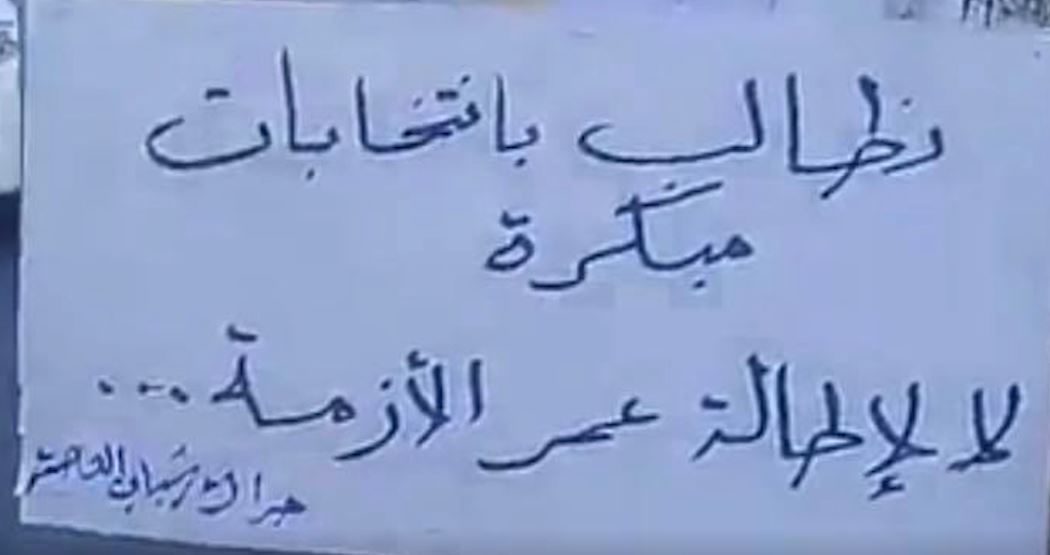 نطالب بانتخابات
مبكرة
لا لإطالة عمر الأزمة...
شباب العاصمة